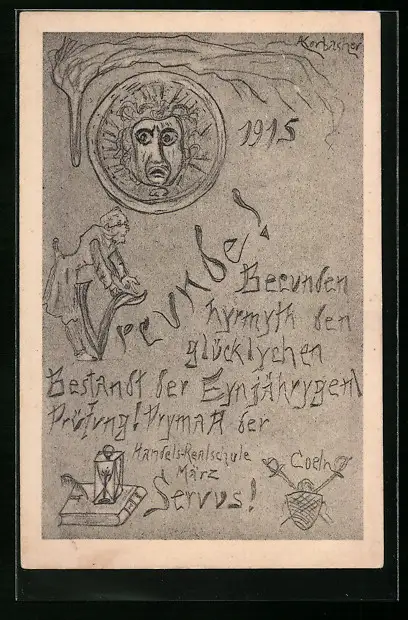 1915
Urcunde!
Becunden
hyrmyth den
glücklychen
Bestandt der Eynjährygen
Prüfung! Pryma A der
Handels-Realschule
Coeln
März
Servus!